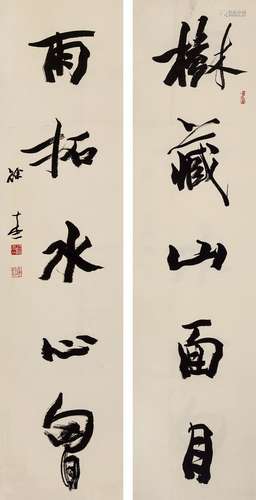 樹藏山面目
雨拓水心胷